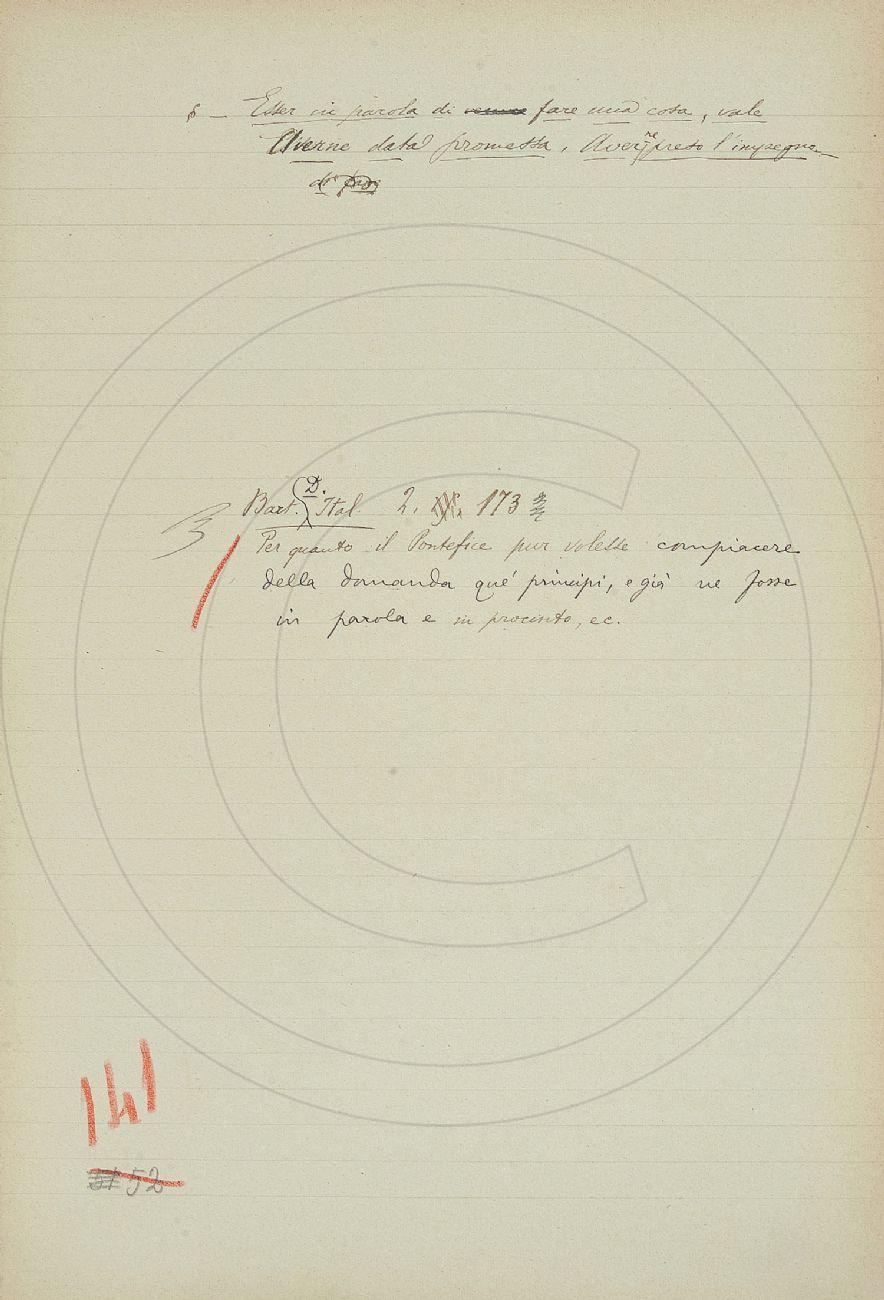 § — Esser in parola di fare una cosa, vale
Averne data promessa, Averne preso l'impegno
Bart. D. Ital. 2. 173
Per quanto il Pontefice pur volesse compiacere
della domanda que' principi, e già ne fosse
in parola e in procinto, ec.
141
52